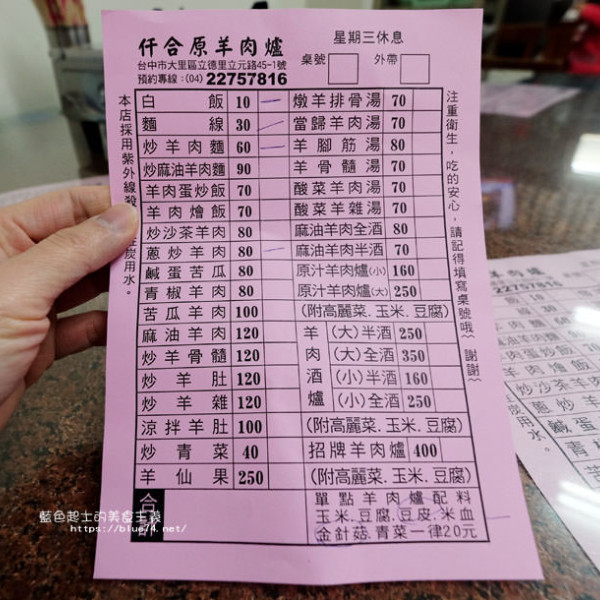 仟合原羊肉爐
星期三休息
台中市大里區立德里立元路45-1號
預約專線:(04) 22757816
桌號
外帶
本店採用紫外線殺
炭用水。
白飯 10
麵線 30
炒羊肉麵 60
炒麻油羊肉麵 90
羊肉蛋炒飯 70
羊肉燴飯 70
炒沙茶羊肉 80
蔥炒羊肉 80
鹹蛋苦瓜 80
青椒羊肉 80
苦瓜羊肉 100
麻油羊肉 120
炒羊骨髓 120
炒羊肚 120
炒羊雜 120
涼拌羊肚 100
炒青菜 40
羊仙果 250
合計
燉羊排骨湯 70
當歸羊肉湯 70
羊腳筋湯 80
羊骨髓湯 70
酸菜羊肉湯 70
酸菜羊雜湯 70
麻油羊肉全酒 80
麻油羊肉半酒 70
原汁羊肉爐(小) 160
原汁羊肉爐(大) 250
(附高麗菜.玉米.豆腐)
羊肉酒爐
(大)半酒 250
(大)全酒 350
(小)半酒 160
(小)全酒 250
(附高麗菜.玉米.豆腐)
招牌羊肉爐 400
(附高麗菜.玉米.豆腐)
單點羊肉爐配料
玉米.豆腐.豆皮.米血
金針菇.青菜一律20元
注重衛生,吃的安心,請記得填寫桌號哦~謝謝~
藍色起士的美食主義
https://blue74.net/
羊肉爐
22757816